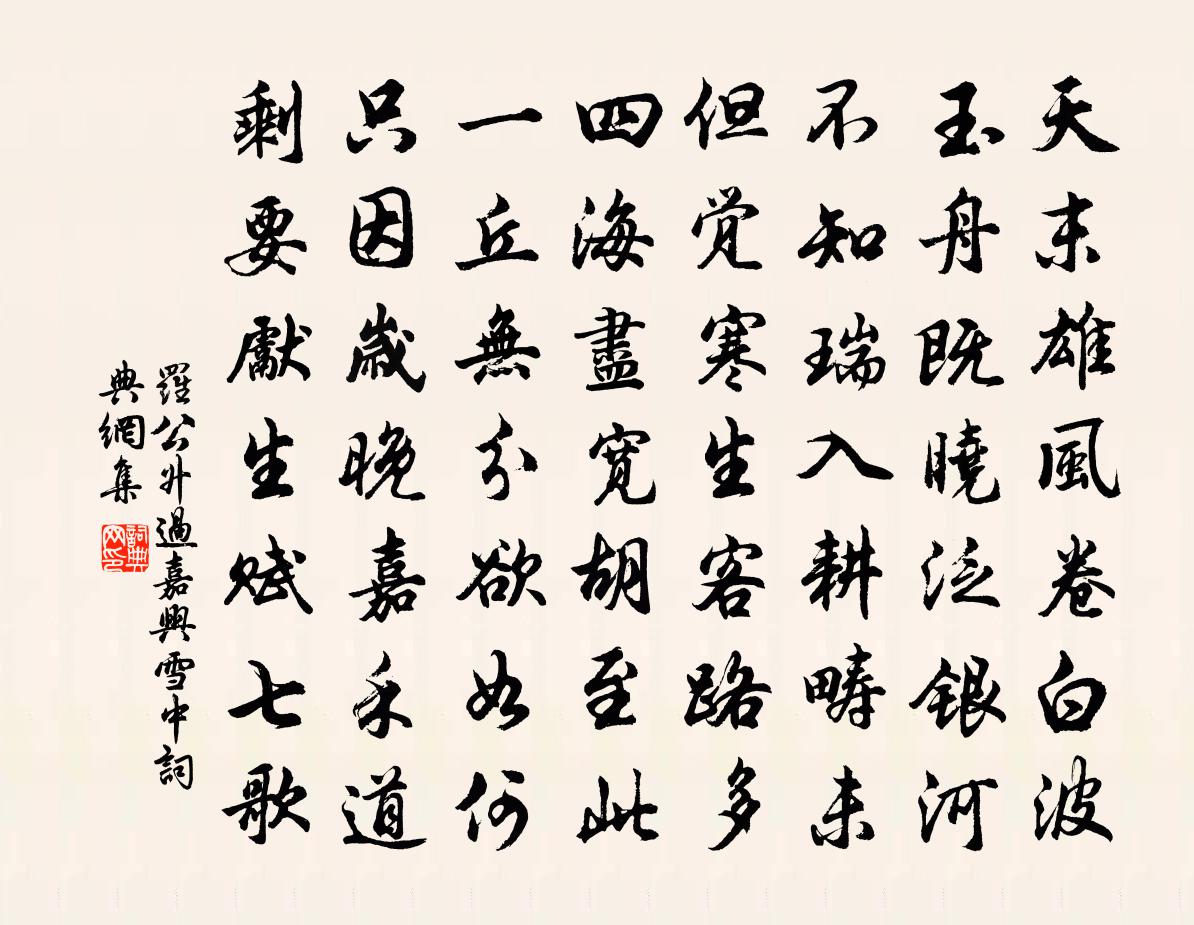 天末雄風卷白波
玉舟既曉泛銀河
不知瑞入耕疇未
但覚寒生客路多
四海盡寛胡至此
一丘無分欲如何
只因歲晚嘉禾道
剩要獻生賦七歌
羅公升過嘉興雪中詞
典網集
詞典
网印